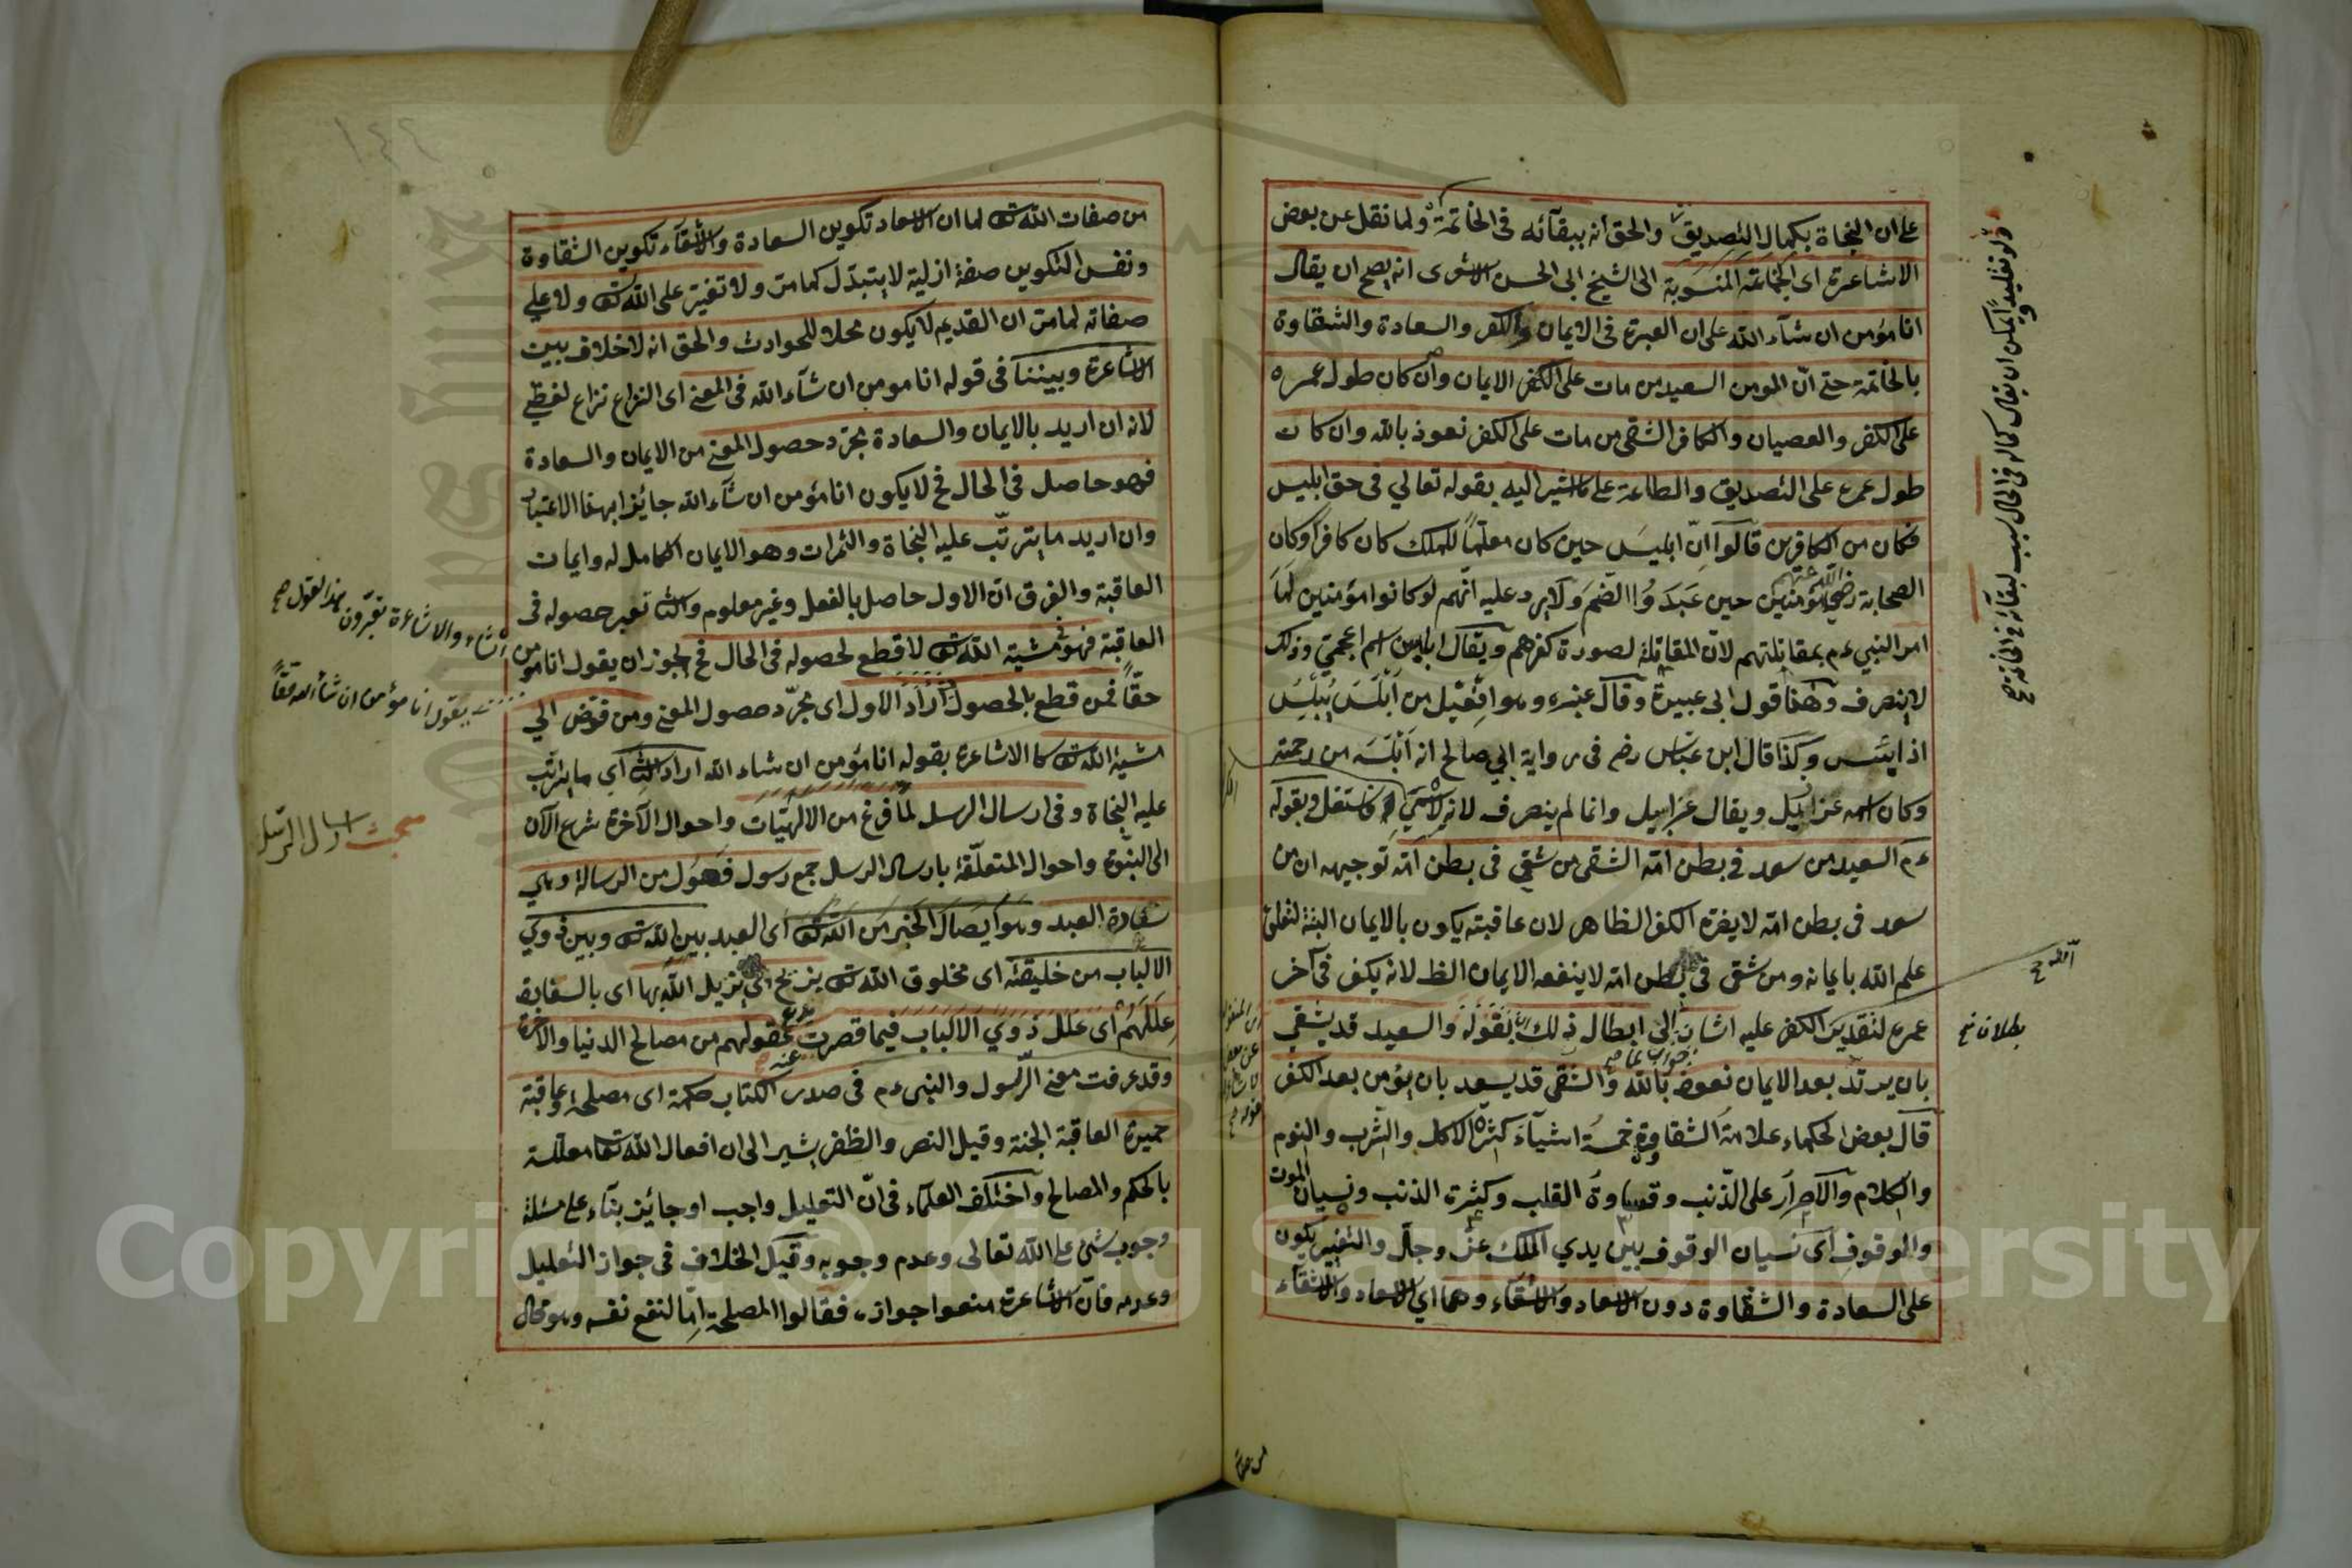 على ان النجاة بكمال التصديق والحق انه ببقآئه فى الخاتمة ولما نقل عن بعض
الاشاعرة اى الجماعة المنسوبة الى الشيخ ابى الحسن الاشعرى انه يصح ان يقال
انا مؤمن ان شآء الله على ان العبرة فى الايمان والكفر والسعادة والشقاوة
بالخاتمة حتى انّ المومن السعيد من مات على الايمان وان كان طول عمره
على الكفر والعصيان والكافر الشقى من مات على الكفر نعوذ بالله وان كان
طول عمره على التصديق والطاعة على ما اشير اليه بقوله تعالي فى حق ابليس
فكان من الكافرين قالوا انّ ابليس حين كان معلّماً للملك كان كافرا وكان
الصحابة رضي الله عنهم مؤمنين حين عبدوا الصنم ولا يرد عليه انّهم لو كانوا مؤمنين لما
امر النبي ءم بمقاتلتهم لانّ المقاتلة لصورة كفرهم ويقال ابليس اسم اعجمي وذلك
لا ينصرف وهكذا قول ابى عبيدة وقال غيره وهو افعيل من ابلس يبلس
اذا يئس وكذا قال ابن عباس رضم فى رواية ابي صالح انه ابلسه من رحمته
وكان اسمه عزازيل ويقال عزابيل وانما لم ينصرف لانه لا سمىّ له فاستثقل وبقوله
ءم السعيد من سعد في بطن امّه الشقى من شقي فى بطن امّه توجيهه ان من
سعد فى بطن امّه لا يضره الكفر الظاهر لان عاقبته يكون بالايمان البتة لتعلق
علم الله بايمانه ومن شقى فى بطن امّه لا ينفعه الايمان الظ لانه يكفر فى آخر
عمره لتقدير الكفر عليه اشار الى ابطال ذلك بقوله والسعيد قد يشقي
بان يرتدّ بعد الايمان نعوذ بالله والشقى قد يسعد بان يؤمن بعد الكفر
قال بعض الحكماء علامة الشقاوة خمسة اشيآء كثرة الاكل والشرب والنوم
والكلام والاصرار على الذنب وقساوة القلب وكثرة الذنب ونسيان الموت
والوقوف اى نسيان الوقوف بين يدي الملك عزّ وجلّ والتغيير يكون
على السعادة والشقاوة دون الاسعاد والاشقآء وهما اي الاسعاد والاشقآء
بطلان نخ
من صفات الله تع لما ان الاسعاد تكوين السعادة والاشقآء تكوين الشقاوة
ونفس التكوين صفة ازلية لا يتبدّل كما مرّ ولا تغيّر على الله تع ولا على
صفاته لما مرّ ان القديم لا يكون محلا للحوادث والحق انه لا خلاف بين
الاشاعرة وبيننا فى قوله انا مومن ان شآء الله فى المعنى اى النزاع نزاع لفظي
لانه ان اريد بالايمان والسعادة مجرّد حصول المعنى من الايمان والسعادة
فهو حاصل فى الحال فح لا يكون انا مؤمن ان شآء الله جائزا بهذا الاعتبار
وان اريد ما يترتّب عليه النجاة والثمرات وهو الايمان الكامل له وايمان
العاقبة والفرق انّ الاول حاصل بالفعل وغير معلوم والثا تعبر حصوله فى
العاقبة فهو فى مشية الله تع لا قطع لحصوله فى الحال فح يجوز ان يقول انا مومن
حقّاً فمن قطع بالحصول اراد الاول اى مجرّد حصول المعنى ومن فوّض الي
مشية الله تع كالاشاعرة بقوله انا مؤمن ان شاء الله اراد الثا اي ما يترتّب
عليه النجاة وفى ارسال الرسل لمّا فرغ من الالهيّات واحوال الآخرة شرع الآن
الى النبوّة واحوال المتعلّقة بارسال الرسل جمع رسول فعول من الرسالة وهي
سفارة العبد وهو ايصال الخبر من الله تع اى العبد بين الله تع وبين ذوي
الالباب من خليقته اى مخلوق الله تع يزيح اى يزيل الله بها اى بالسفارة
عللهم اى علل ذوي الالباب فيما قصرت عنه عقولهم من مصالح الدنيا والآخرة
وقد عرفت معنى الرّسول والنبى ءم فى صدر الكتاب حكمة اى مصلحة وعاقبة
حميدة العاقبة الجنة وقيل النصر والظفر يشير الى ان افعال الله تعا معلّلة
بالحكم والمصالح واختلف العلمآء فى انّ التعليل واجب او جائز بنآء على مسئلة
وجوب شئ على الله تعالى وعدم وجوبه وقيل الخلاف فى جواز التعليل
وعدمه فانّ الاشاعرة منعوا جوازه فقالوا المصلحة امّا لنفع نفسه وهو محال
مبحث ارسال الرسل
يقول انا مؤمن ان شاء الله حقّاً